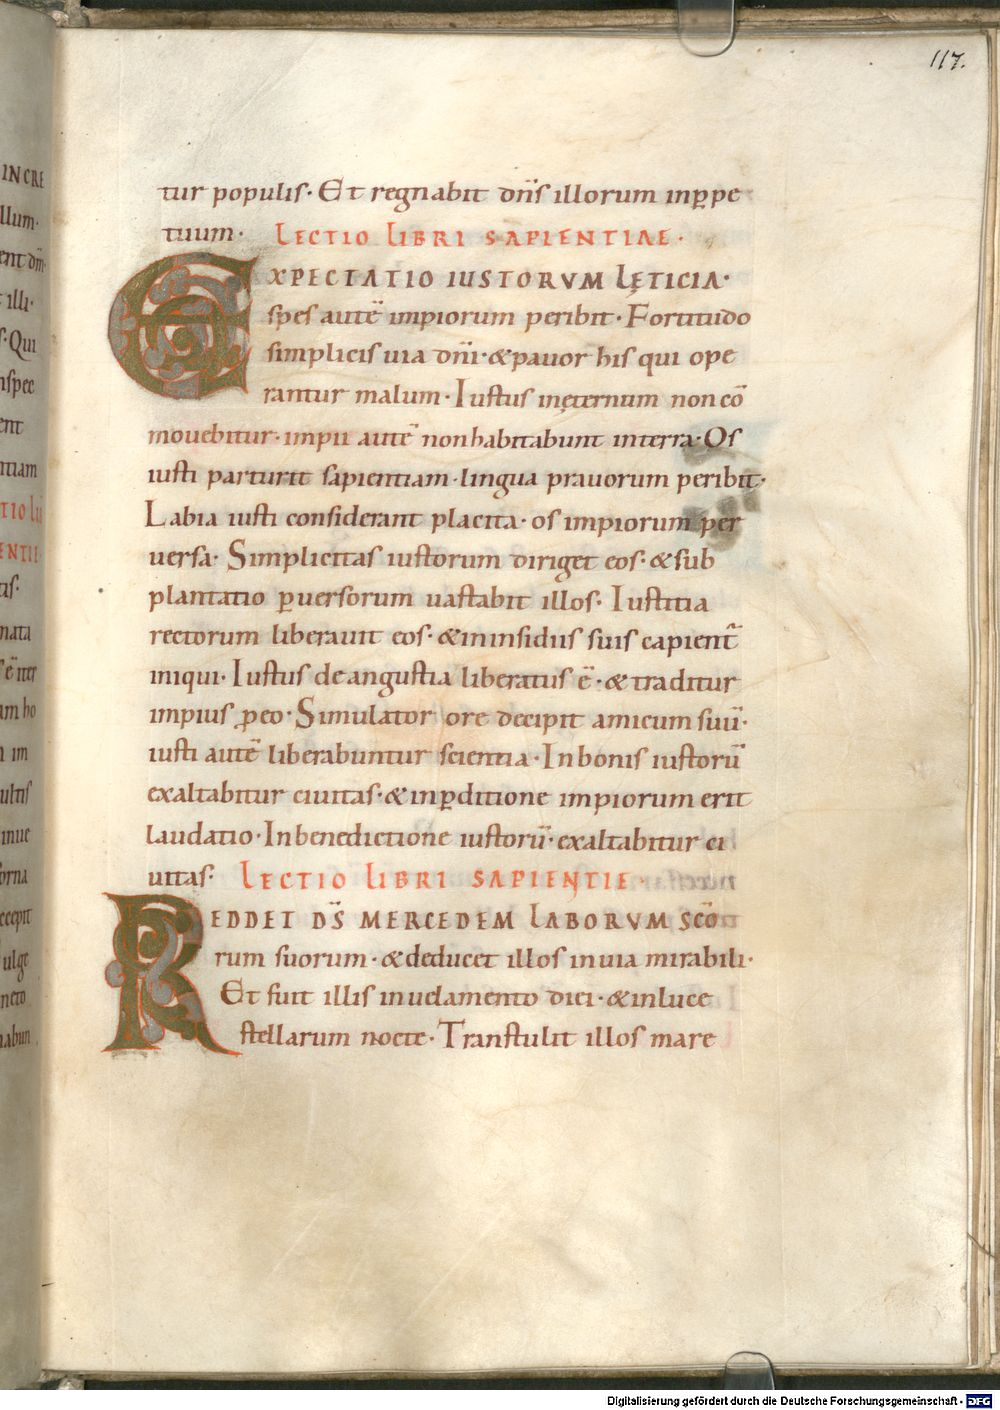 117.
tur populis· Et regnabit dn̄s illorum inꝑpe
tuum· LECTIO LIBRI SAPIENTIAE·
EXPECTATIO IUSTORVM LĘTICIA·
spes autē impiorum peribit· Fortitudo
simplicis uia dn̄i· &pauor his qui ope
rantur malum· Iustus inęternum non cō
mouebitur· impii autē non habitabunt interra· Os
iusti parturit sapientiam· lingua prauorum peribit·
Labia iusti considerant placita· os impiorum per
uersa· Simplicitas iustorum diriget eos· & sub
plantatio ꝑuersorum uastabit illos· Iustitia
rectorum liberauit eos· &ininsidiis suis capient̄
iniqui· Iustus de angustia liberatus ē· & traditur
impius ꝓ eo· Simulator ore decipit amicum suū·
iusti autē liberabuntur scientia· In bonis iustorū
exaltabitur ciuitas· & inꝑditione impiorum erit
laudatio· In benedictione iustorū· exaltabitur ci
uitas· LECTIO LIBRI SAPIENTIE·
REDDET DS̄ MERCEDEM LABORVM SCŌ
rum suorum· & deducet illos in uia mirabili·
Et fuit illis in uelamento diei· & inluce
stellarum nocte· Transtulit illos mare
INCRE
llum·
ent dm̄·
illi·
Qui
nspec
ent
ntiam
TIO LI
ENTIE·
tis·
nata
ē iter
am ho
im
ultis
mue
orna
ccepit
ulge
neto
nabun
Digitalisierung gefördert durch die Deutsche Forschungsgemeinschaft - DFG